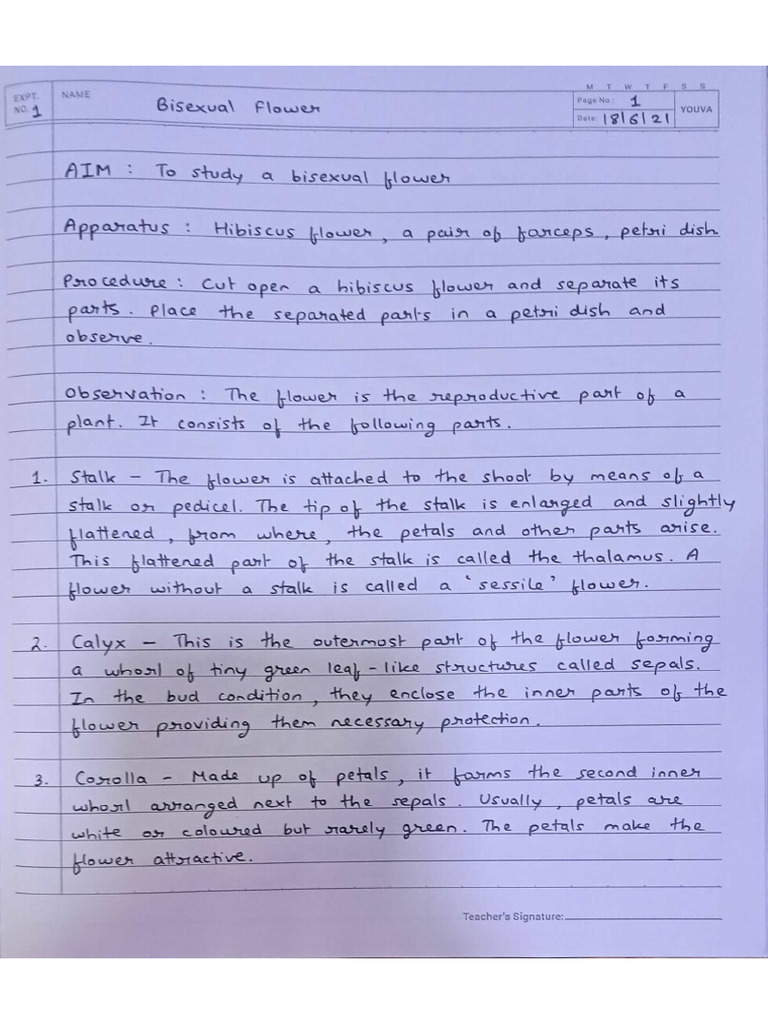 M T W T F S S
EXPT. NO. 1 NAME Bisexual Flower Page No.: 1 YOUVA
Date: 18/6/21
AIM : To study a bisexual flower
Apparatus : Hibiscus flower, a pair of forceps, petri dish
Procedure : Cut open a hibiscus flower and separate its
parts. Place the separated parts in a petri dish and
observe.
Observation : The flower is the reproductive part of a
plant. It consists of the following parts.
1. Stalk - The flower is attached to the shoot by means of a
stalk or pedicel. The tip of the stalk is enlarged and slightly
flattened, from where, the petals and other parts arise.
This flattened part of the stalk is called the thalamus. A
flower without a stalk is called a 'sessile' flower.
2. Calyx - This is the outermost part of the flower forming
a whorl of tiny green leaf-like structures called sepals.
In the bud condition, they enclose the inner parts of the
flower providing them necessary protection.
3. Corolla - Made up of petals, it forms the second inner
whorl arranged next to the sepals. Usually, petals are
white or coloured but rarely green. The petals make the
flower attractive.
Teacher's Signature: